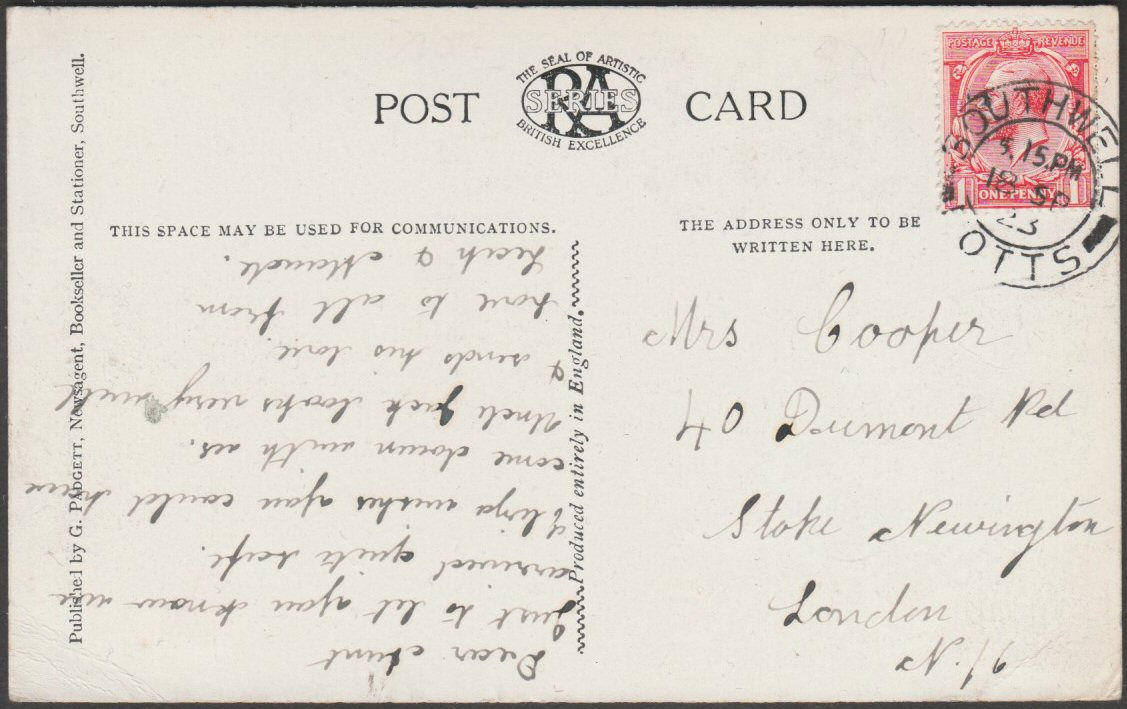 POST CARD
THE SEAL OF ARTISTIC
RA
SERIES
BRITISH EXCELLENCE
POSTAGE REVENUE
1 ONE PENNY 1
SOUTHWELL
3.15 PM
18 SP
23
NOTTS
THIS SPACE MAY BE USED FOR COMMUNICATIONS.
THE ADDRESS ONLY TO BE
WRITTEN HERE.
Published by G. PADGETT, Newsagent, Bookseller and Stationer, Southwell.
Produced entirely in England.
Dear Aunt
Just to let you know we
arrived quite safe.
Eliza wishes you could have
come down with us.
Uncle Jack looks very well
& sends his love.
Love to all from
& Maude.
Mrs Cooper
40 Dumont Rd
Stoke Newington
London
N.16